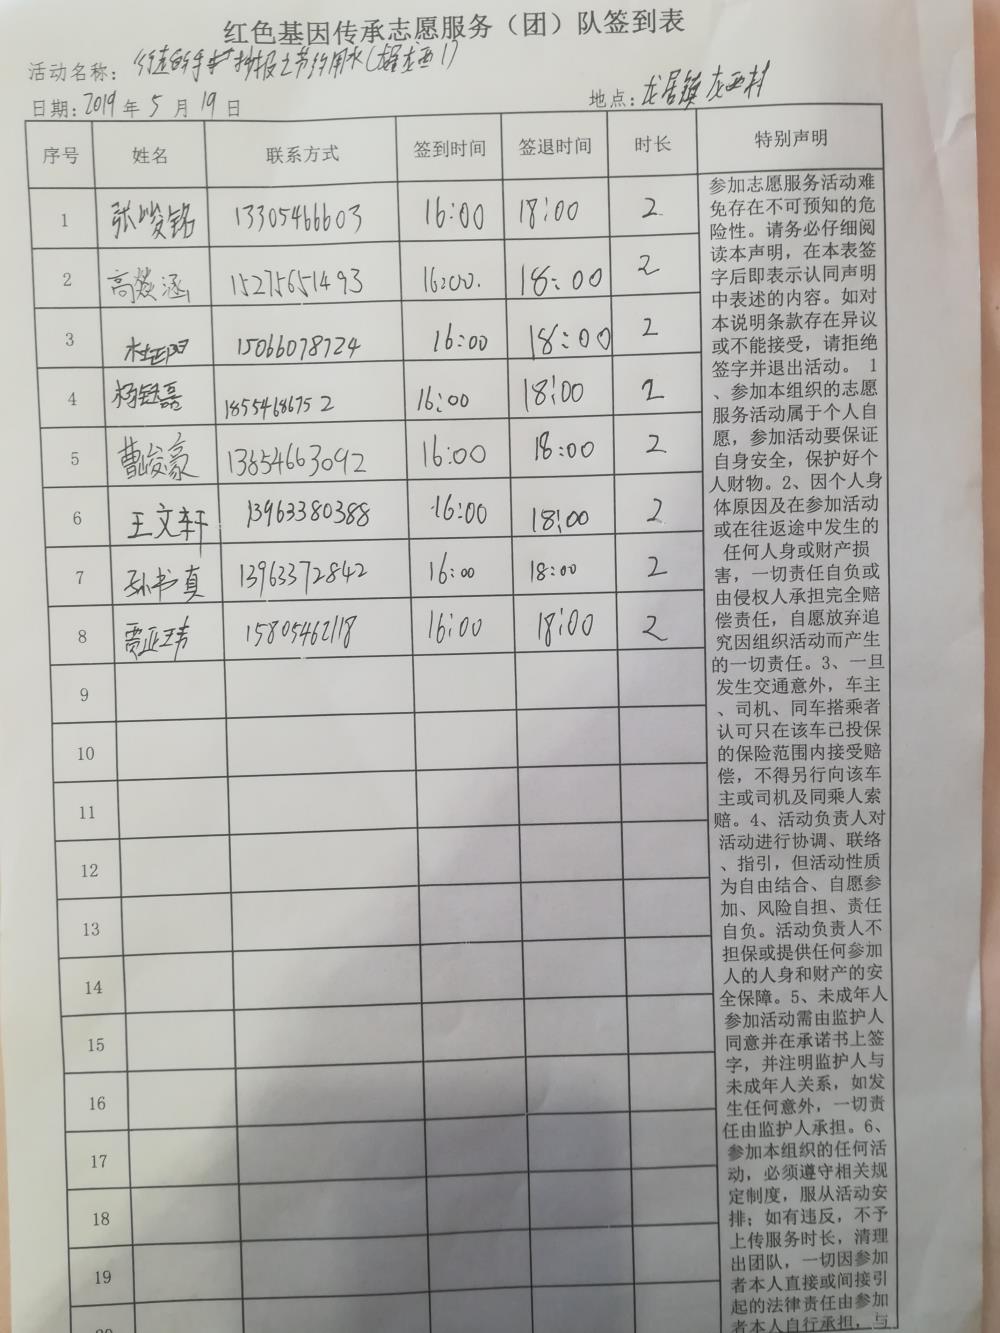 红色基因传承志愿服务（团）队签到表
活动名称： 手抄报之节约用水
日期：2019 年 5 月 19 日 地点：龙居镇龙西村
序号 姓名 联系方式 签到时间 签退时间 时长 特别声明
1 张峻铭 13305466603 16:00 18:00 2
2 高 涵 15275651493 16:00. 18:00 2
3 15066078724 16:00 18:00 2
4 杨钰磊 18554686752 16:00 18:00 2
5 曹峻豪 13654663092 16:00 18:00 2
6 王文轩 13963380388 16:00 18:00 2
7 孙书真 13963372842 16:00 18:00 2
8 贾亚玮 15805462118 16:00 18:00 2
9
10
11
12
13
14
15
16
17
18
19
20
参加志愿服务活动难
免存在不可预知的危
险性。请务必仔细阅
读本声明，在本表签
字后即表示认同声明
中表述的内容。如对
本说明条款存在异议
或不能接受，请拒绝
签字并退出活动。 1
、参加本组织的志愿
服务活动属于个人自
愿，参加活动要保证
自身安全，保护好个
人财物。2、因个人身
体原因及在参加活动
或在往返途中发生的
任何人身或财产损
害，一切责任自负或
由侵权人承担完全赔
偿责任，自愿放弃追
究因组织活动而产生
的一切责任。3、一旦
发生交通意外，车主
、司机、同车搭乘者
认可只在该车已投保
的保险范围内接受赔
偿，不得另行向该车
主或司机及同乘人索
赔。4、活动负责人对
活动进行协调、联络
、指引，但活动性质
为自由结合、自愿参
加、风险自担、责任
自负。活动负责人不
担保或提供任何参加
人的人身和财产的安
全保障。5、未成年人
参加活动需由监护人
同意并在承诺书上签
字，并注明监护人与
未成年人关系，如发
生任何意外，一切责
任由监护人承担。6、
参加本组织的任何活
动，必须遵守相关规
定制度，服从活动安
排；如有违反，不予
上传服务时长，清理
出团队，一切因参加
者本人直接或间接引
起的法律责任由参加
者本人自行承担，与